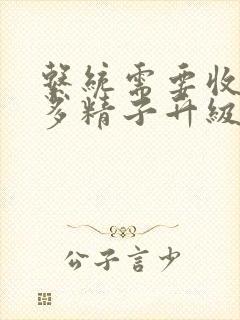 繫統需要收
多精子升級
公子言少